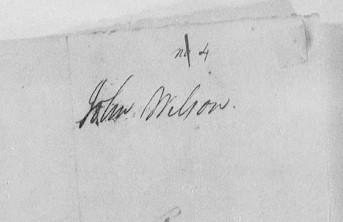 no 4
John Wilson.